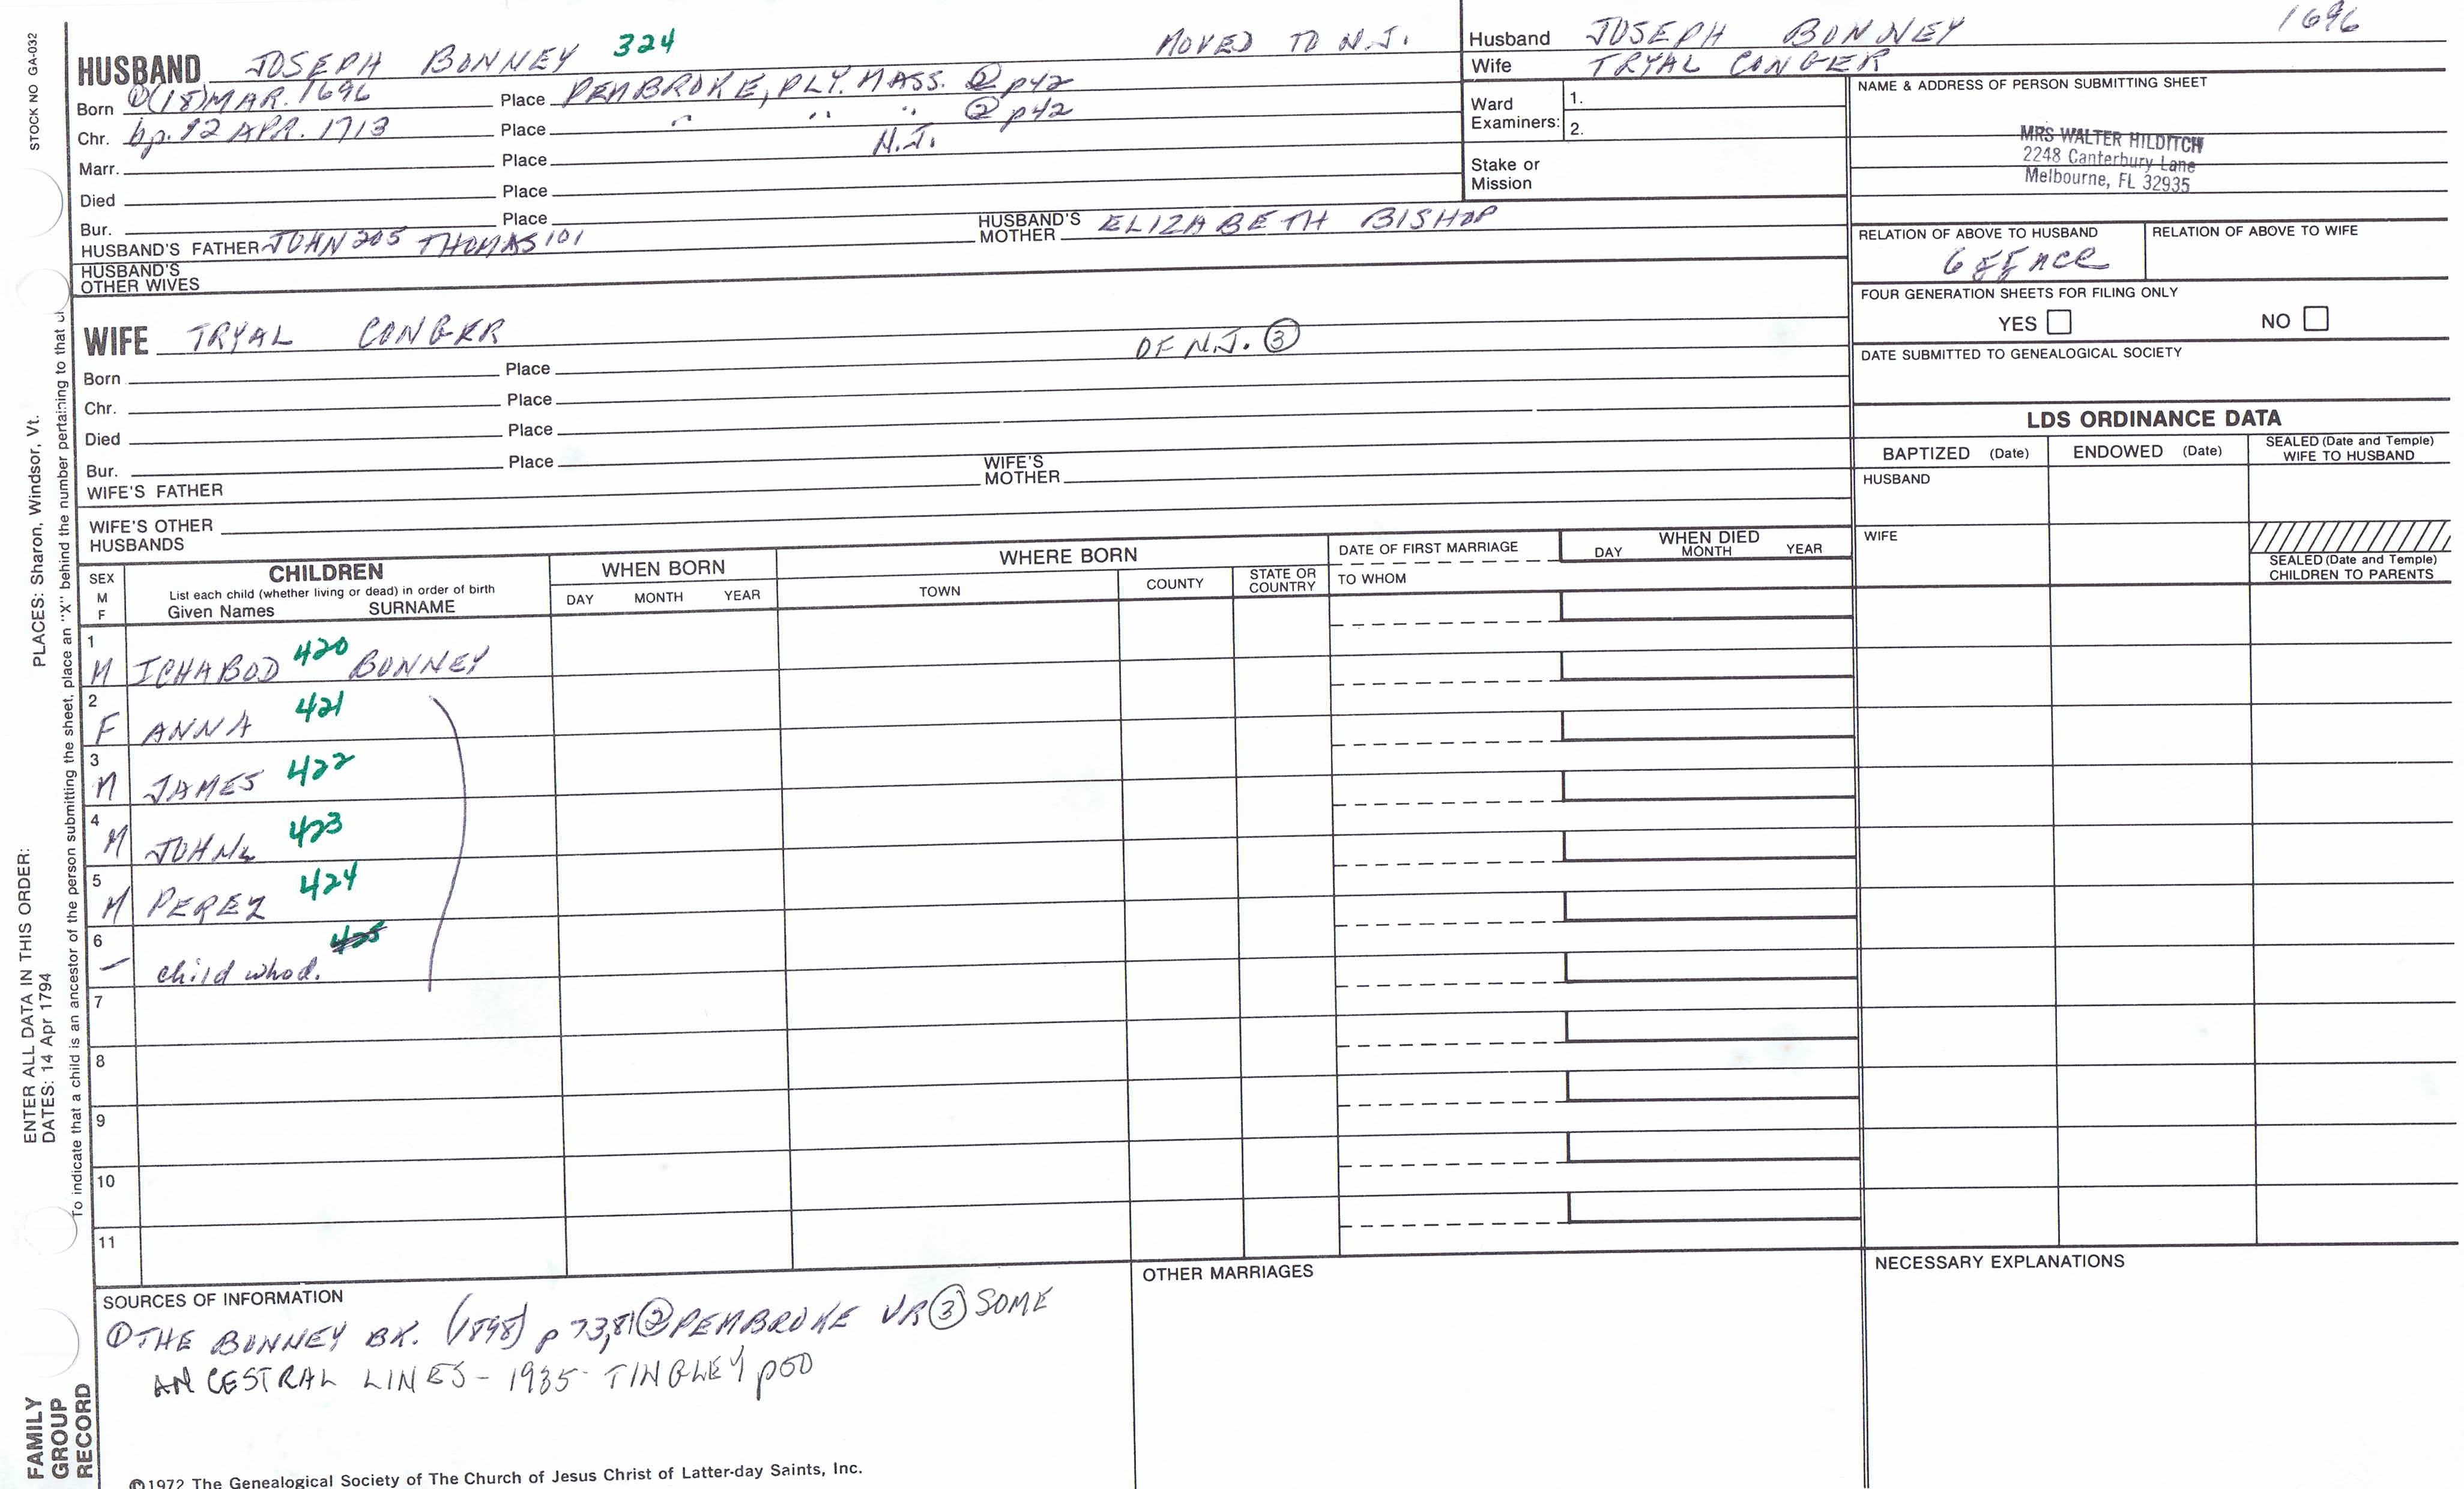 STOCK NO GA-032
HUSBAND JOSEPH BONNEY 324 MOVED TO N.J.
Born ①(18) MAR. 1696 Place PEMBROKE, PLY. MASS. ② p42
Chr. bp. 12 APR. 1713 Place " " " ② p42
Marr. Place N.J.
Died Place
Bur. Place
HUSBAND'S FATHER JOHN 205 THOMAS 101 HUSBAND'S MOTHER ELIZABETH BISHOP
HUSBAND'S
OTHER WIVES
WIFE TRYAL CONGER OF N.J. ③
Born Place
Chr. Place
Died Place
Bur. Place
WIFE'S FATHER WIFE'S MOTHER
WIFE'S OTHER
HUSBANDS
Husband JOSEPH BONNEY 1696
Wife TRYAL CONGER
Ward
Examiners:
1.
2.
Stake or
Mission
NAME & ADDRESS OF PERSON SUBMITTING SHEET
MRS WALTER HILDITCH
2248 Canterbury Lane
Melbourne, FL 32935
RELATION OF ABOVE TO HUSBAND RELATION OF ABOVE TO WIFE
FOUR GENERATION SHEETS FOR FILING ONLY
YES NO
DATE SUBMITTED TO GENEALOGICAL SOCIETY
LDS ORDINANCE DATA
BAPTIZED (Date) ENDOWED (Date) SEALED (Date and Temple) WIFE TO HUSBAND
HUSBAND
WIFE
SEALED (Date and Temple)
CHILDREN TO PARENTS
SEX
M
F
CHILDREN
List each child (whether living or dead) in order of birth
Given Names SURNAME
WHEN BORN
DAY MONTH YEAR
WHERE BORN
TOWN COUNTY STATE OR COUNTRY
DATE OF FIRST MARRIAGE
TO WHOM
WHEN DIED
DAY MONTH YEAR
1 M ICHABOD 420 BONNEY
2 F ANNA 421
3 M JAMES 422
4 M JOHN 423
5 M PEREZ 424
6 – child who d. 425
7
8
9
10
11
SOURCES OF INFORMATION
① THE BONNEY BK. (1898) p 73,81 ② PEMBROKE VR ③ SOME
ANCESTRAL LINES - 1935 - TINGLEY p50
OTHER MARRIAGES
NECESSARY EXPLANATIONS
©1972 The Genealogical Society of The Church of Jesus Christ of Latter-day Saints, Inc.
FAMILY
GROUP
RECORD
ENTER ALL DATA IN THIS ORDER:
DATES: 14 Apr 1794
PLACES: Sharon, Windsor, Vt.
To indicate that a child is an ancestor of the person submitting the sheet, place an "X" behind the number pertaining to that